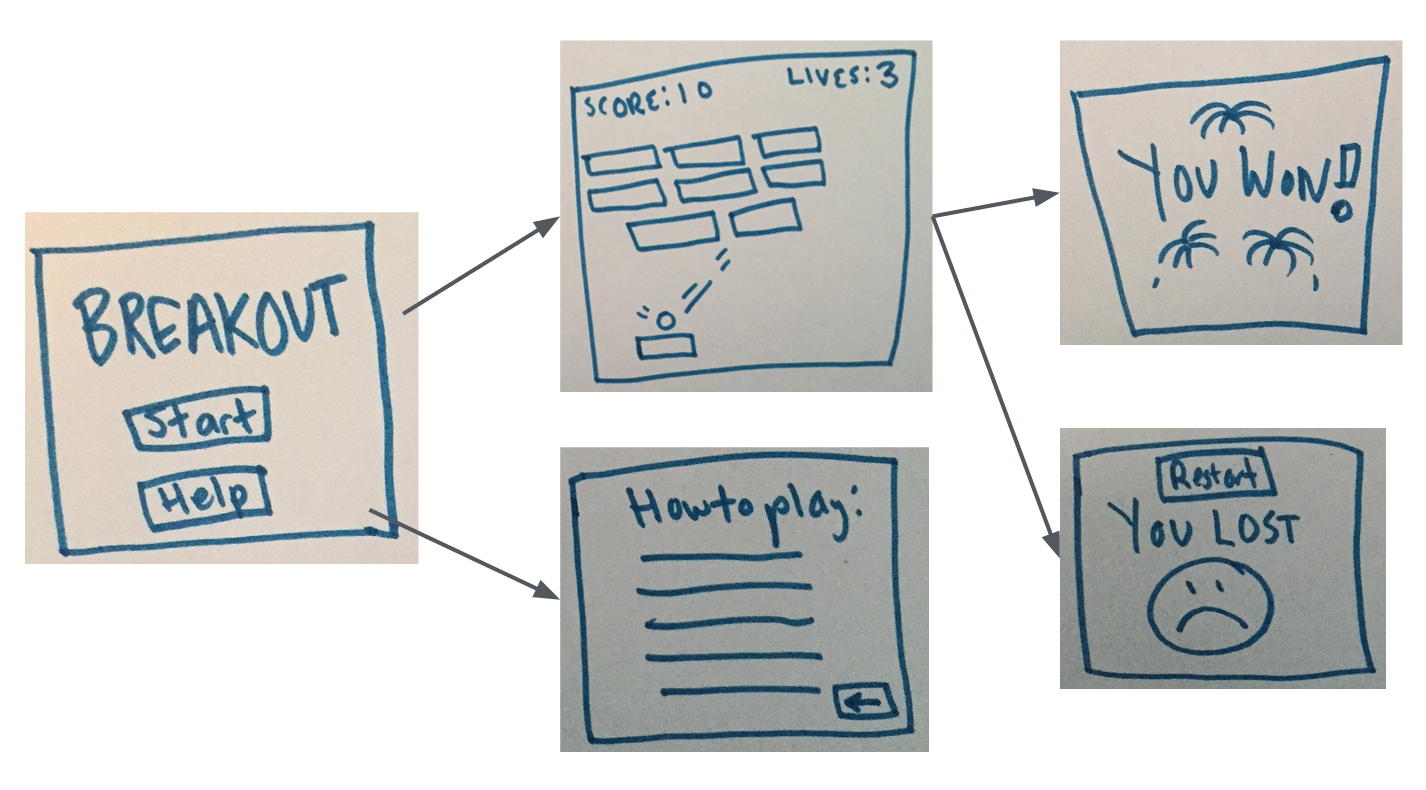 BREAKOUT
Start
Help
SCORE: 10 LIVES: 3
How to play:
YOU WON!
Restart
YOU LOST